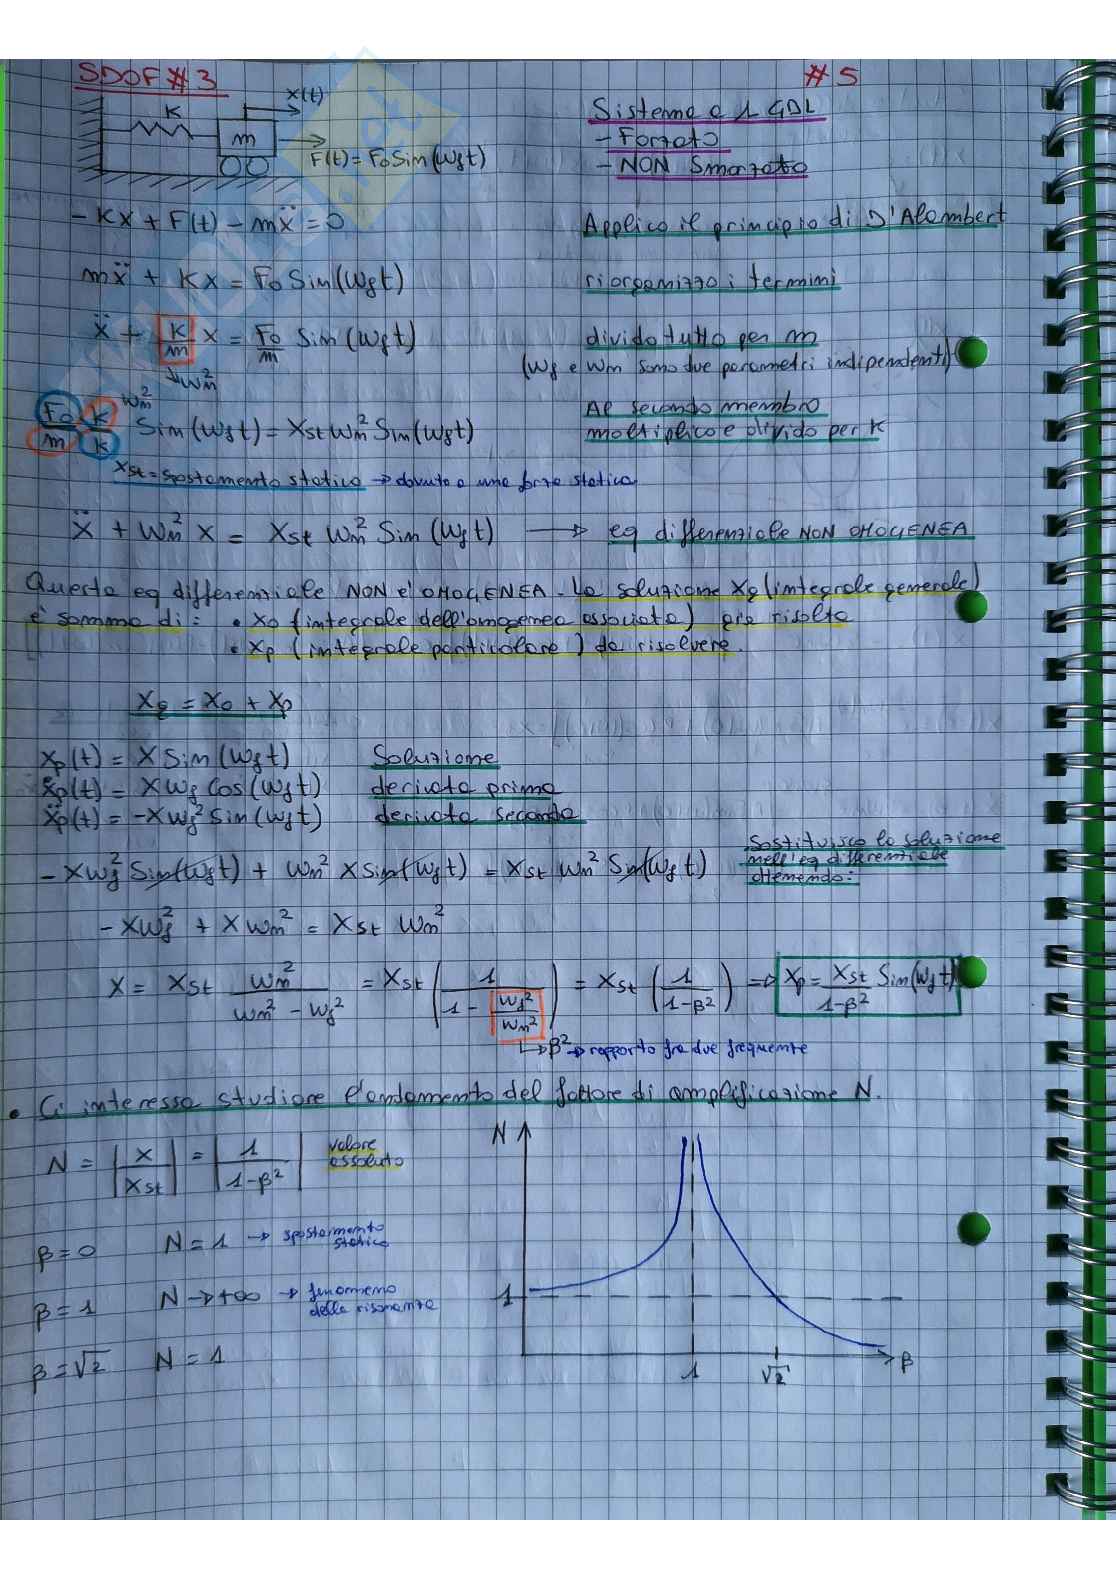 SDOF #3
#5
x(t)
K
m
F(t) = F₀ Sin(ωf t)
Sistema a 1 GDL
- Forzato
- NON Smorzato
-Kx + F(t) - mẍ = 0
Applico il principio di D'Alembert
mẍ + Kx = F₀ Sin(ωf t)
riorganizzo i termini
ẍ + K/m x = F₀/m Sin(ωf t)
divido tutto per m
↳ ωn²
(ωf e ωn sono due parametri indipendenti)
ωn²
F₀/m K/K Sin(ωf t) = Xst ωn² Sin(ωf t)
Al secondo membro
moltiplico e divido per K
Xst = spostamento statico → dovuto a una forza statica
ẍ + ωn² x = Xst ωn² Sin(ωf t) → eq differenziale NON OMOGENEA
Questa eq differenziale NON è OMOGENEA. La soluzione Xg (integrale generale)
è somma di: • X₀ (integrale dell'omogenea associata) già risolta
• Xp (integrale particolare) da risolvere.
Xg = X₀ + Xp
xp(t) = X Sin(ωf t) Soluzione
ẋp(t) = X ωf Cos(ωf t) derivata prima
ẍp(t) = -X ωf² Sin(ωf t) derivata seconda
-X ωf² Sin(ωf t) + ωn² X Sin(ωf t) = Xst ωn² Sin(ωf t)
Sostituisco la soluzione
nell'eq differenziale
ottenendo:
-X ωf² + X ωn² = Xst ωn²
X = Xst ωn²/(ωn² - ωf²) = Xst (1/(1 - ωf²/ωn²)) = Xst (1/(1-β²)) ⇒ Xp = Xst/(1-β²) Sin(ωf t)
↳ β² → rapporto fra due frequenze
• Ci interessa studiare l'andamento del fattore di amplificazione N.
N = |X/Xst| = |1/(1-β²)|
valore
assoluto
β = 0 N = 1 → spostamento
statico
β = 1 N → +∞ → fenomeno
della risonanza
β = √2 N = 1
N
1
1
√2
β